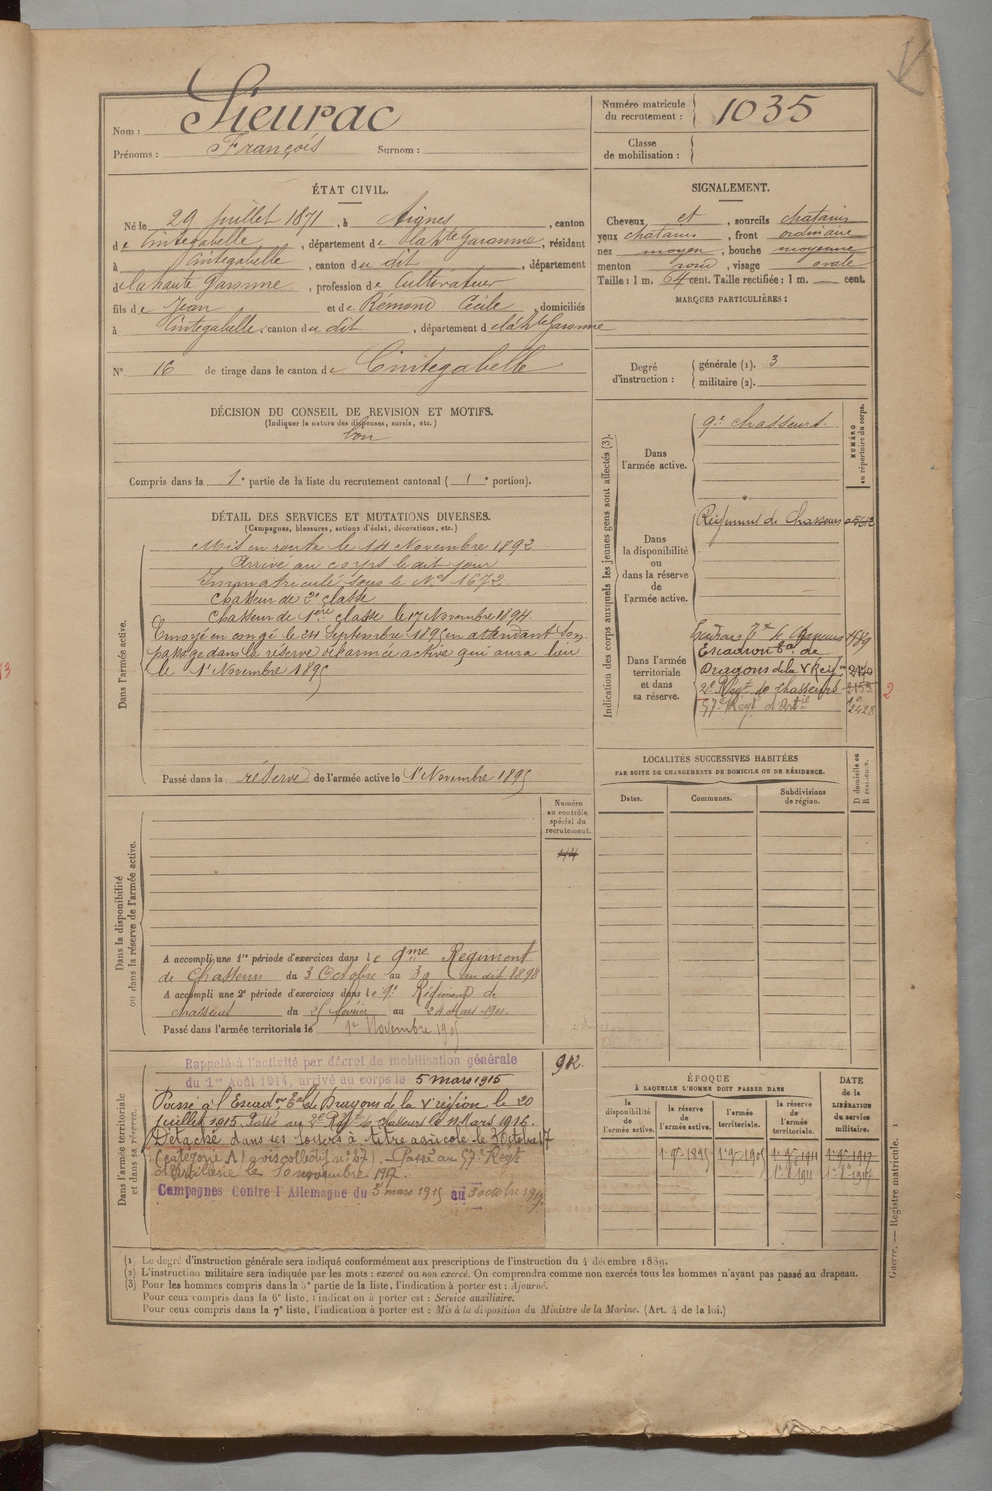 Nom : Sieurac
Prénoms : François Surnom :
Numéro matricule du recrutement : 1035
Classe de mobilisation :
ÉTAT CIVIL.
Né le 29 Juillet 1871, à Aignes, canton
de Cintegabelle, département de la Hte Garonne, résidant
à Cintegabelle, canton du dit, département
de la haute Garonne, profession de Cultivateur
fils de Jean et de Rémond Cécile, domiciliés
à Cintegabelle, canton du dit, département de la Hte Garonne
N° 16 de tirage dans le canton de Cintegabelle
SIGNALEMENT.
Cheveux et, sourcils chatains
yeux chatains, front ordinaire
nez moyen, bouche moyenne
menton rond, visage ovale
Taille : 1 m. 64 cent. Taille rectifiée : 1 m. — cent.
MARQUES PARTICULIÈRES :
Degré d'instruction : générale (1). 3
militaire (2).
DÉCISION DU CONSEIL DE REVISION ET MOTIFS.
(Indiquer la nature des dispenses, sursis, etc.)
bon
Compris dans la 1e partie de la liste du recrutement cantonal ( 1e portion).
DÉTAIL DES SERVICES ET MUTATIONS DIVERSES.
(Campagnes, blessures, actions d'éclat, décorations, etc.)
Dans l'armée active.
Mis en route le 14 Novembre 1892
Arrivé au corps le dit jour
Immatriculé sous le No 1672.
Chasseur de 2e classe
Chasseur de 1ère classe le 17 Novembre 1894
Envoyé en congé le 24 Septembre 1895 en attendant son
passage dans la réserve de l'armée active qui aura lieu
le 1er Novembre 1895
Passé dans la réserve de l'armée active le 1er Novembre 1895
Indication des corps auxquels les jeunes gens sont affectés (3).
NUMÉRO au répertoire du corps.
Dans l'armée active.
9e chasseurs.
Dans la disponibilité ou dans la réserve de l'armée active.
Régiment de Chasseurs
Dans l'armée territoriale et dans sa réserve.
Escadron Eal de
Dragons de la V Région
2e Régt de chasseurs
57e Régt d'Artie 2428
2
LOCALITÉS SUCCESSIVES HABITÉES
PAR SUITE DE CHANGEMENTS DE DOMICILE OU DE RÉSIDENCE.
Dates. Communes. Subdivisions de région. D domicile ou R résidence.
Dans la disponibilité ou dans la réserve de l'armée active.
Numéro au contrôle spécial du recrutement.
A accompli une 1re période d'exercices dans le 9me Régiment
de Chasseurs du 3 Octobre au 30 du dit 1898
A accompli une 2e période d'exercices dans le 9e Régiment de
chasseurs du 25 février au 24 Mars 1901.
Passé dans l'armée territoriale le 1er Novembre 1905
Dans l'armée territoriale et dans sa réserve.
912
Rappelé à l'activité par décret de mobilisation générale
du 1er Août 1914, arrivé au corps le 5 mars 1915
Passé à l'Escadron Eal de Dragons de la V région le 20
juillet 1915. Passé au 2e Régt de chasseurs le 11 Mars 1916.
Détaché dans ses foyers à titre agricole le 3 octobre 17
(catégorie A) avis collectif n° 27). Passé au 57e Régt
d'Artillerie le 10 novembre 1917.
Campagnes Contre l'Allemagne du 5 mars 1915 au 3 octobre 1917
ÉPOQUE
À LAQUELLE L'HOMME DOIT PASSER DANS
la disponibilité de l'armée active. la réserve de l'armée active. l'armée territoriale. la réserve de l'armée territoriale.
DATE de la LIBÉRATION du service militaire.
(1) Le degré d'instruction générale sera indiqué conformément aux prescriptions de l'instruction du 4 décembre 1889.
(2) L'instruction militaire sera indiquée par les mots : exercé ou non exercé. On comprendra comme non exercés tous les hommes n'ayant pas passé au drapeau.
(3) Pour les hommes compris dans la 5e partie de la liste, l'indication à porter est : Ajourné.
Pour ceux compris dans la 6e liste, l'indication à porter est : Service auxiliaire.
Pour ceux compris dans la 7e liste, l'indication à porter est : Mis à la disposition du Ministre de la Marine. (Art. 4 de la loi.)
Guerre. — Registre matricule. 1